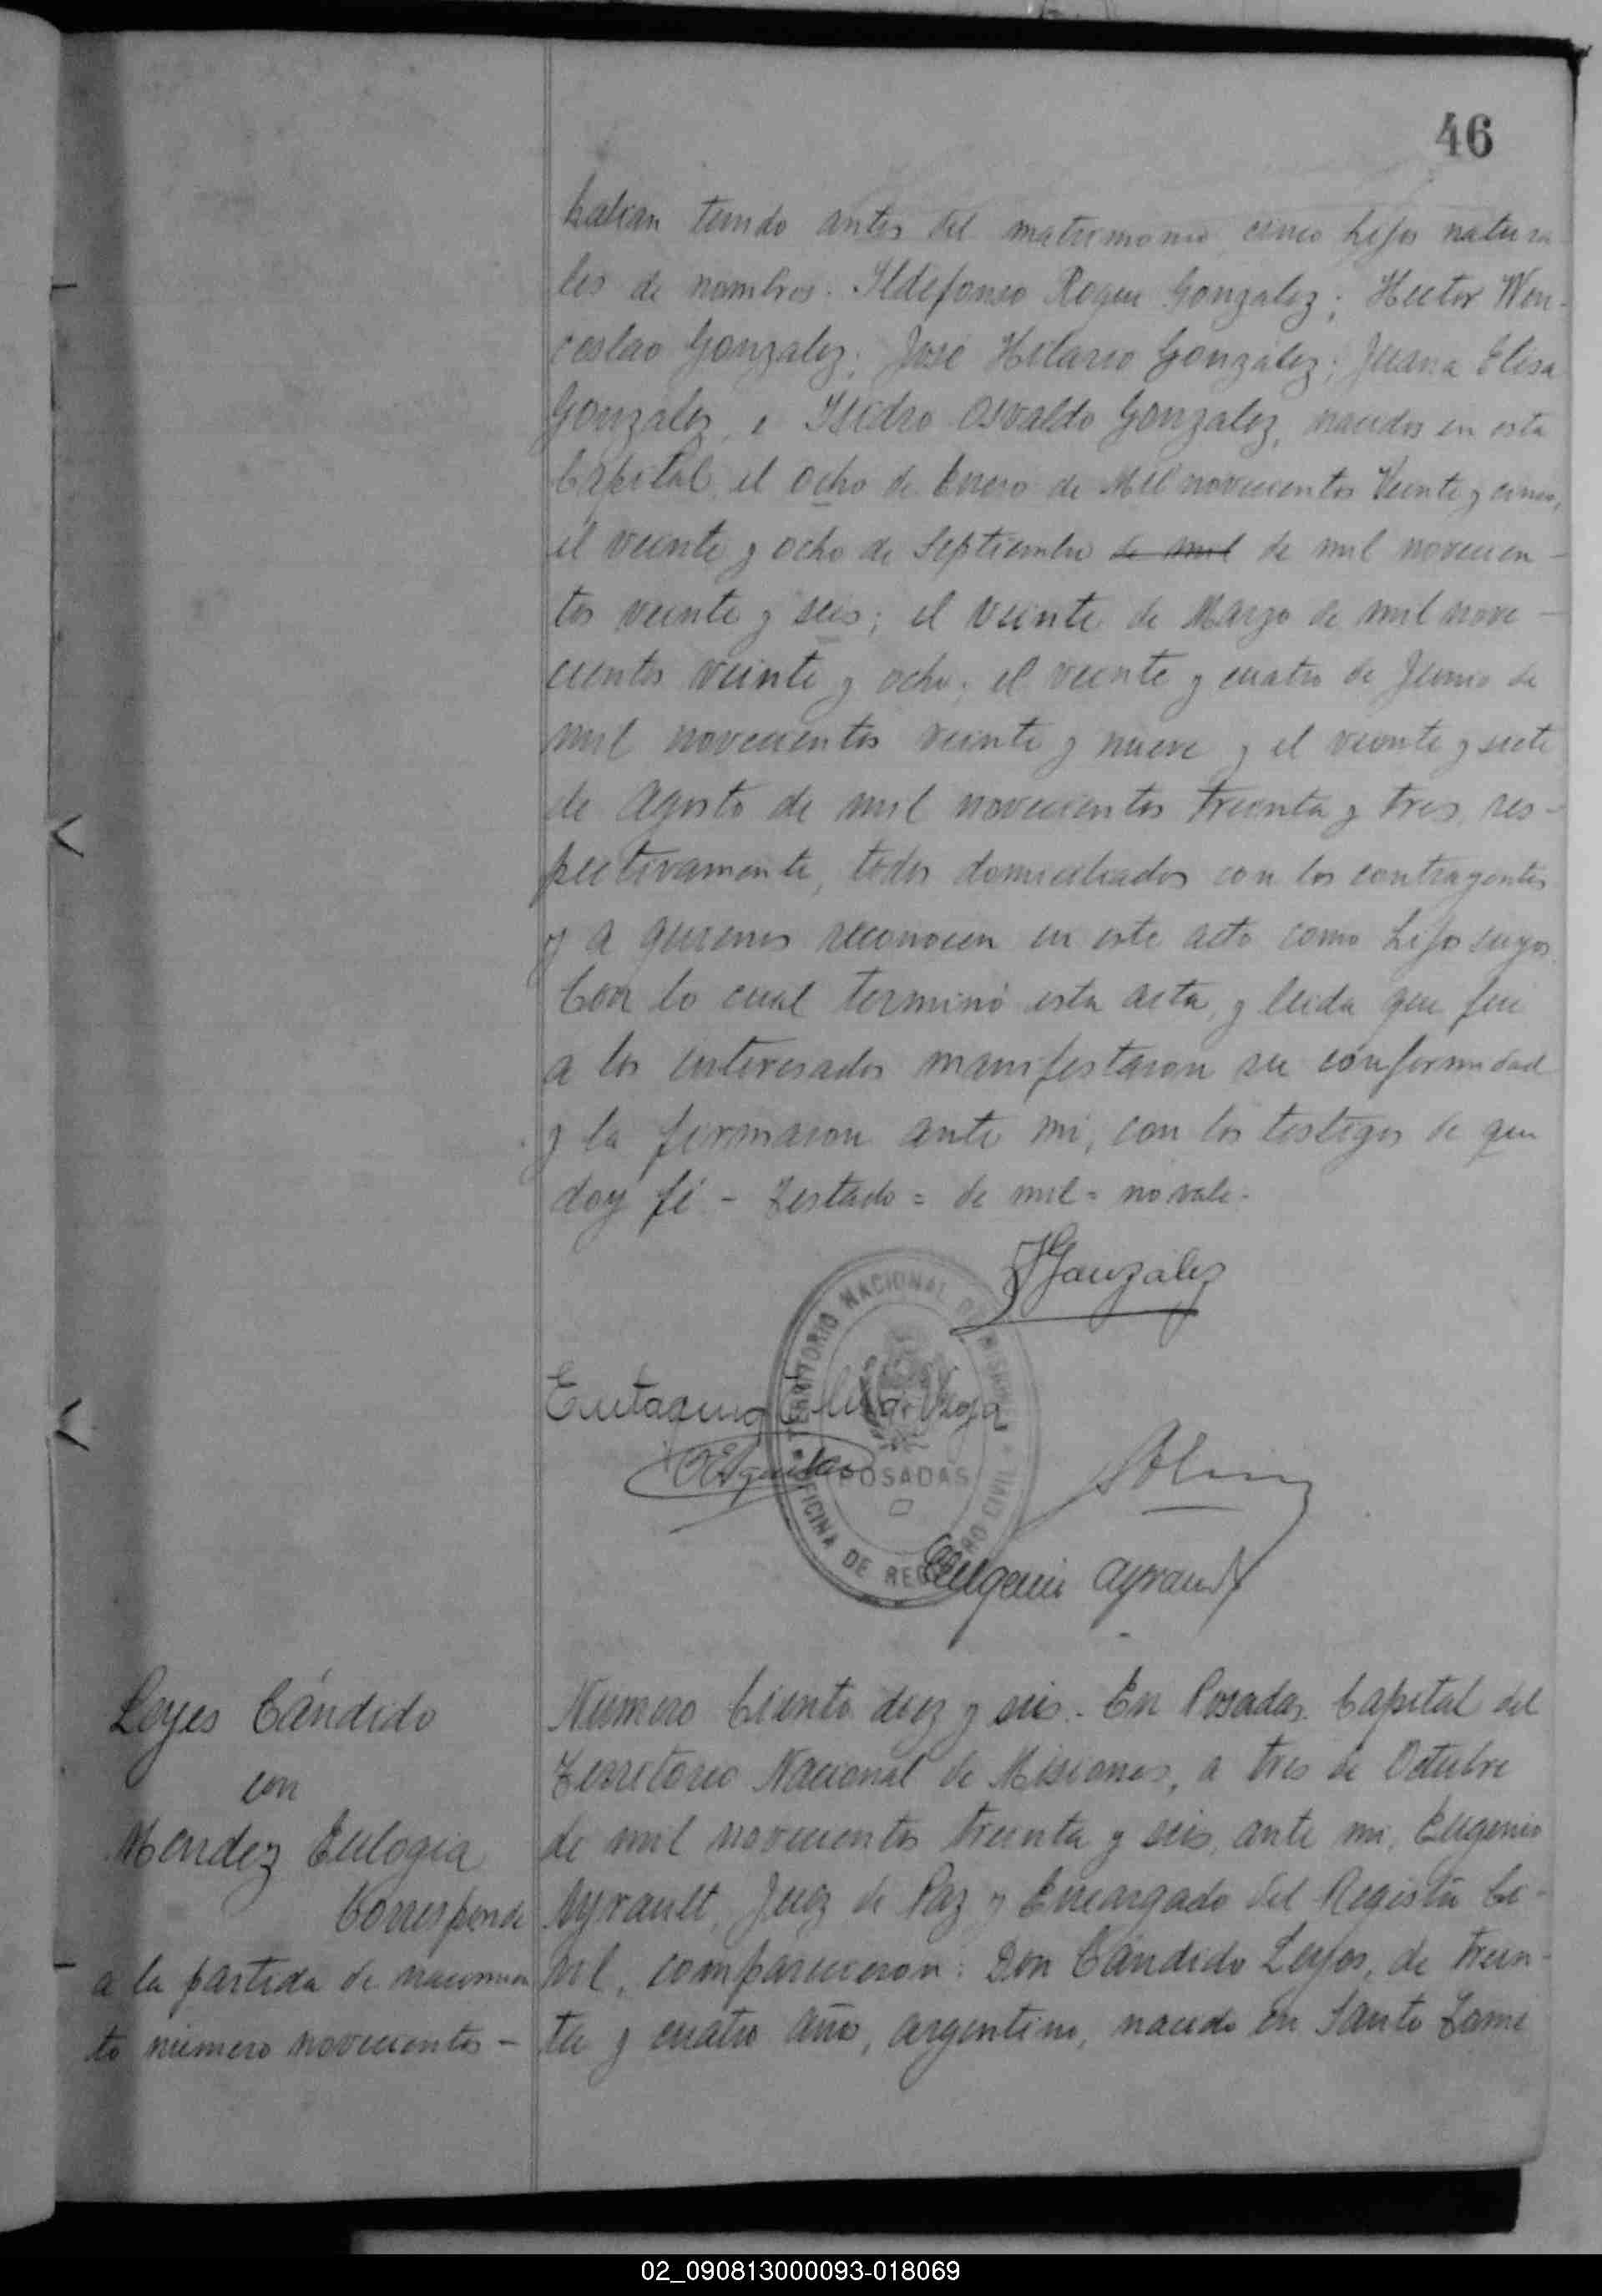 46
habian tenido antes del matrimonio cinco hijos natura
les de nombres: Ildefonso Roque Gonzalez; Hector Wen-
ceslao Gonzalez; José Hilario González; Juana Elisa
Gonzalez, e Isidro Osvaldo Gonzalez, nacidos en esta
Capital, el ocho de Enero de Mil novecientos Veinte y cinco,
el veinte y ocho de Septiembre de mil de mil novecien-
tos veinte y seis; el veinte de Marzo de mil nove-
cientos veinte y ocho; el veinte y cuatro de Junio de
mil novecientos veinte y nueve y el veinte y siete
de Agosto de mil novecientos treinta y tres, res-
pectivamente, todos domiciliados con los contrayentes
y a quienes reconocen en este acto como hijos suyos.
Con lo cual terminó esta acta, y leida que fue
a los interesados manifestaron su conformidad
y la firmaron ante mi, con los testigos de que
doy fé - Testado = de mil = no vale.
JGonzález
TERRITORIO NACIONAL DE MISIONES
POSADAS
OFICINA DE REGISTRO CIVIL
Eugenio Ayrault
Leyes Cándido
con
Mendez Eulogia
Corresponde
a la partida de nacimien
to número novecientos -
Número Ciento diez y seis.- En Posadas, Capital del
Territorio Nacional de Misiones, a tres de Octubre
de mil novecientos treinta y seis, ante mi, Eugenio
Ayrault, Juez de Paz y Encargado del Registro Ci-
vil, comparecieron: Don Cándido Leyes, de trein-
ta y cuatro años, argentino, nacido en Santo Tomé
02_090813000093-018069